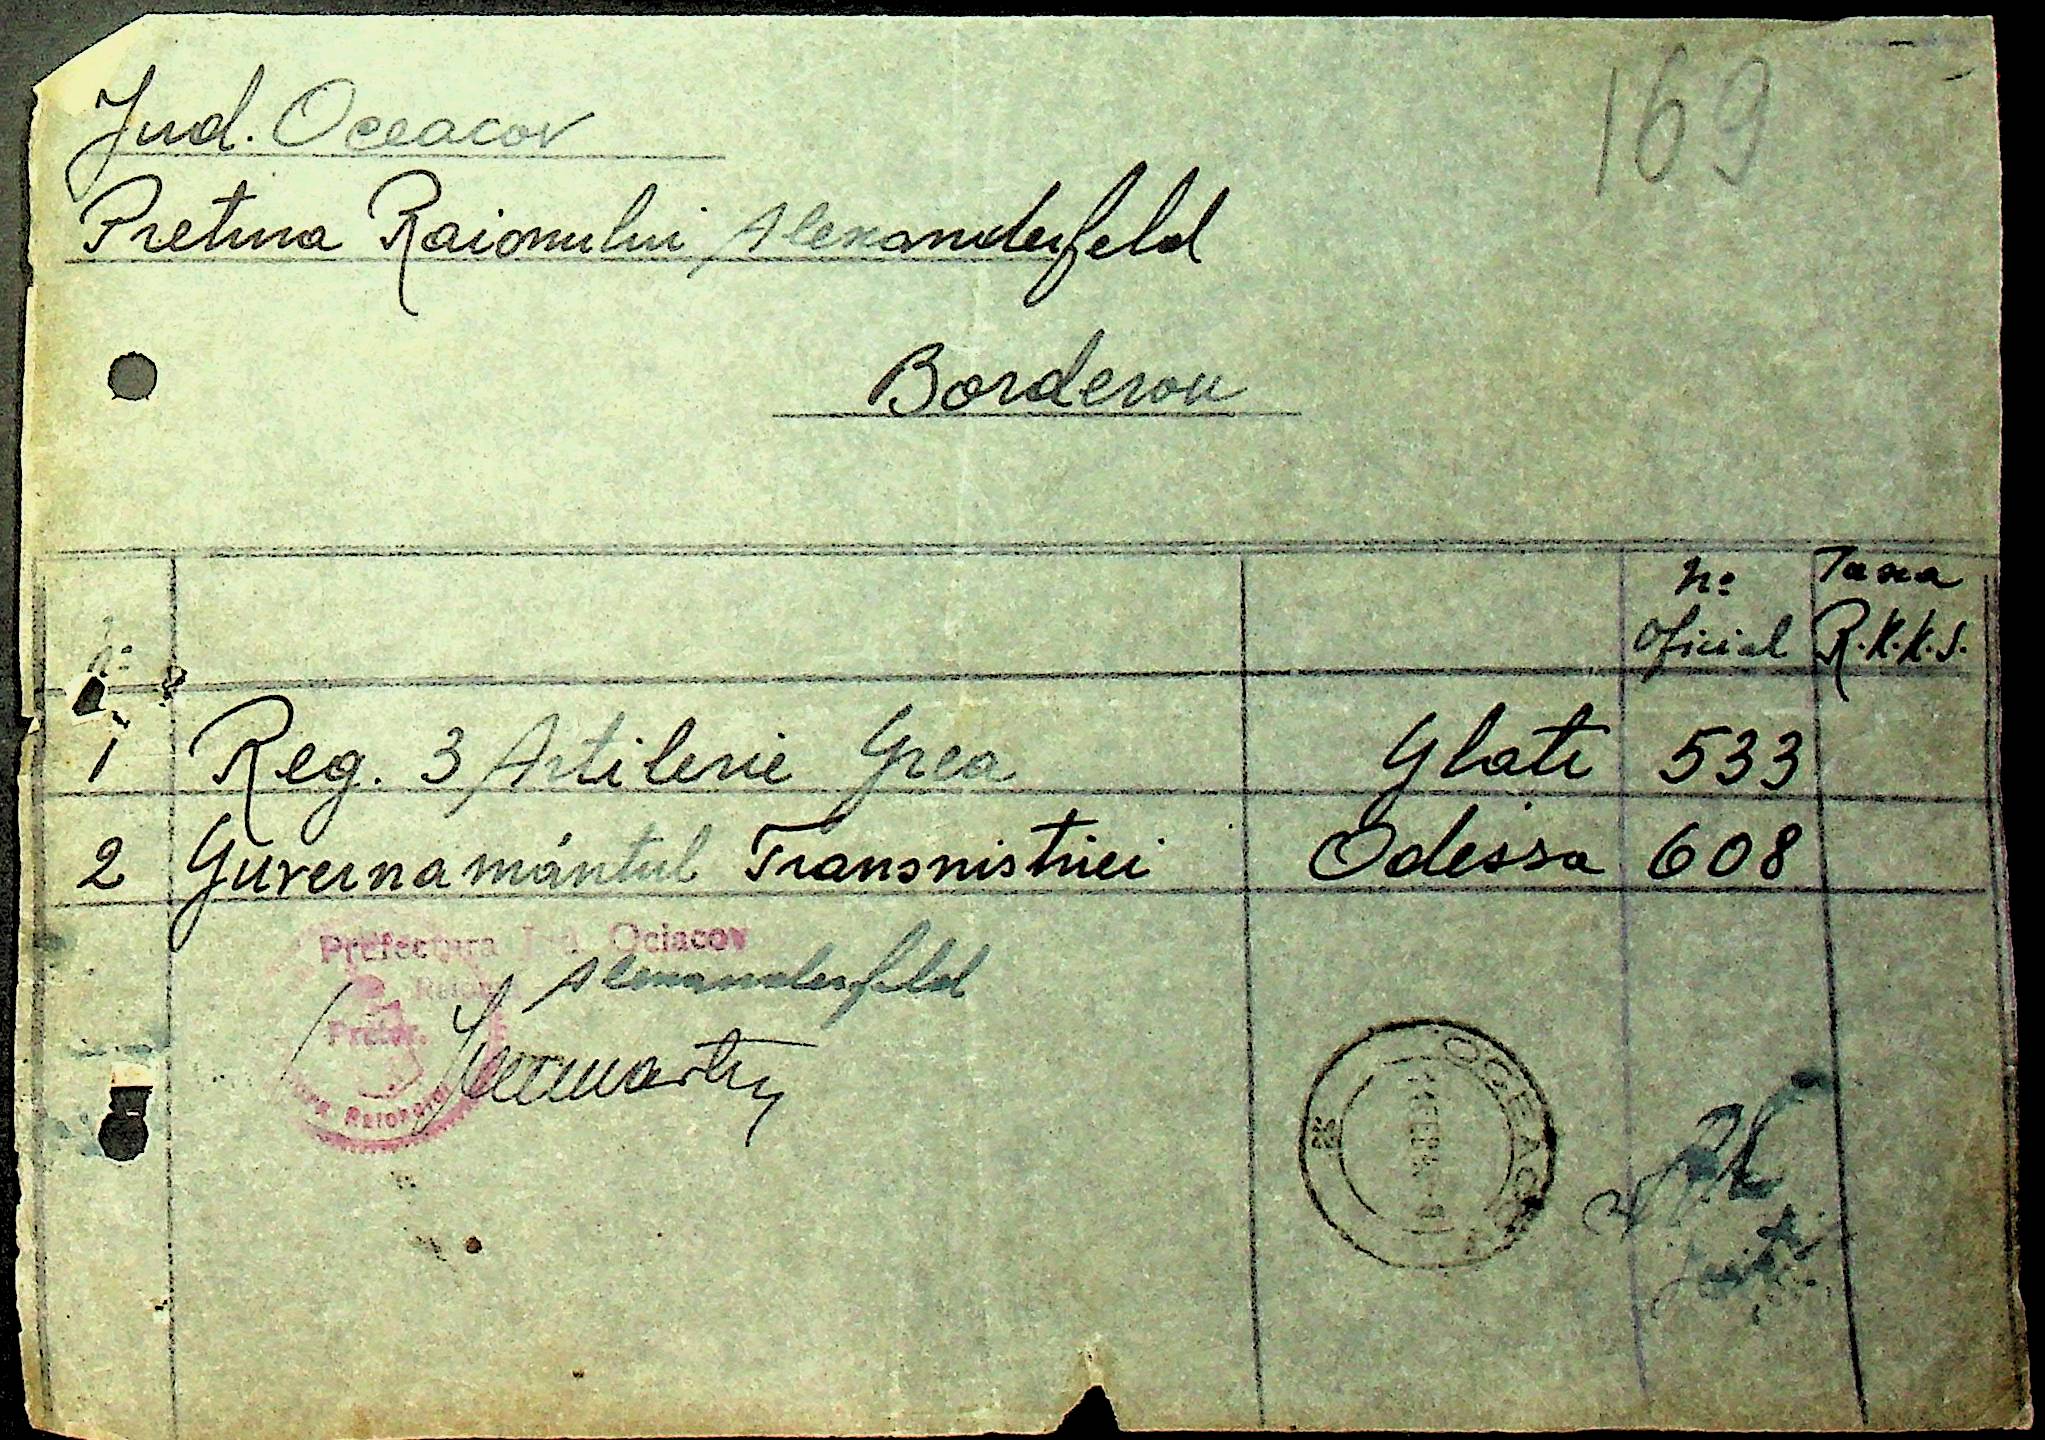 169
Jud. Oceacov
Pretura Raionului Alexanderfeld
Borderou
No
No Oficial
Taxa R.K.K.S.
1 Reg. 3 Artilerie Grea Glati 533
2 Guvernamántul Transnistriei Odessa 608
Prefectura Jud. Ociacov
Alexanderfeld
Pretor.
OCEACOV